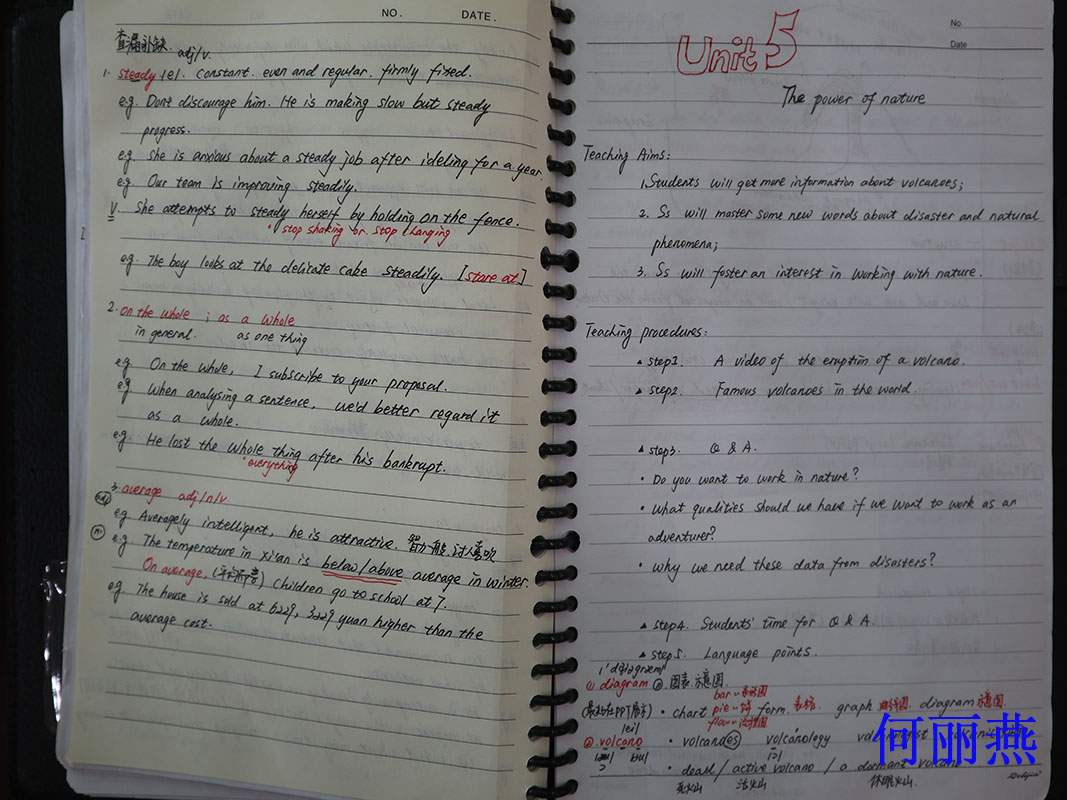 NO. DATE.
查漏补缺 adj/v.
1. steady /e/. constant. even and regular. firmly fixed.
e.g. Dont discourage him. He is making slow but steady
progress.
e.g. she is anxious about a steady job after ideling for a year.
e.g. Our team is improving steadily.
V. She attempts to steady herself by holding on the fence.
• stop shaking or stop changing
e.g. The boy looks at the delicate cake steadily. [stare at]
2. on the whole ; as a whole
in general. as one thing
e.g. On the whole, I subscribe to your proposal.
e.g. When analysing a sentence, we'd better regard it
as a whole.
e.g. He lost the whole thing after his bankrupt.
• everything
3. average adj/n/v
adj e.g. Averagely intelligent, he is attractive. 智力一般,讨人喜欢
n. e.g. The temperature in xi'an is below/above average in winter.
On average, (平均而言) children go to school at 7.
e.g. The house is sold at 6229, 3229 yuan higher than the
average cost.
No.
Date
Unit 5
The power of nature
Teaching Aims:
1. Students will get more information about volcanoes;
2. Ss will master some new words about disaster and natural
phenomena;
3. Ss will foster an interest in working with nature.
Teaching procedures:
▲ step1. A video of the eruption of a volcano.
▲ step2. Famous volcanoes in the world.
▲ step3. Q & A.
• Do you want to work in nature?
• what qualities should we have if we want to work as an
adventurer?
• why we need these data from disasters?
▲ step4. Students' time for Q & A.
▲ step5. Language points.
① diagram n. 图表.示意图.
bar~
• chart pie~饼 form. 表格. graph 曲线图. diagram 示意图.
flow~流程图
② volcano • volcano(es) volcanology
• dead / active volcano / a dormant volcano
死火山 活火山 休眠火山
何丽燕